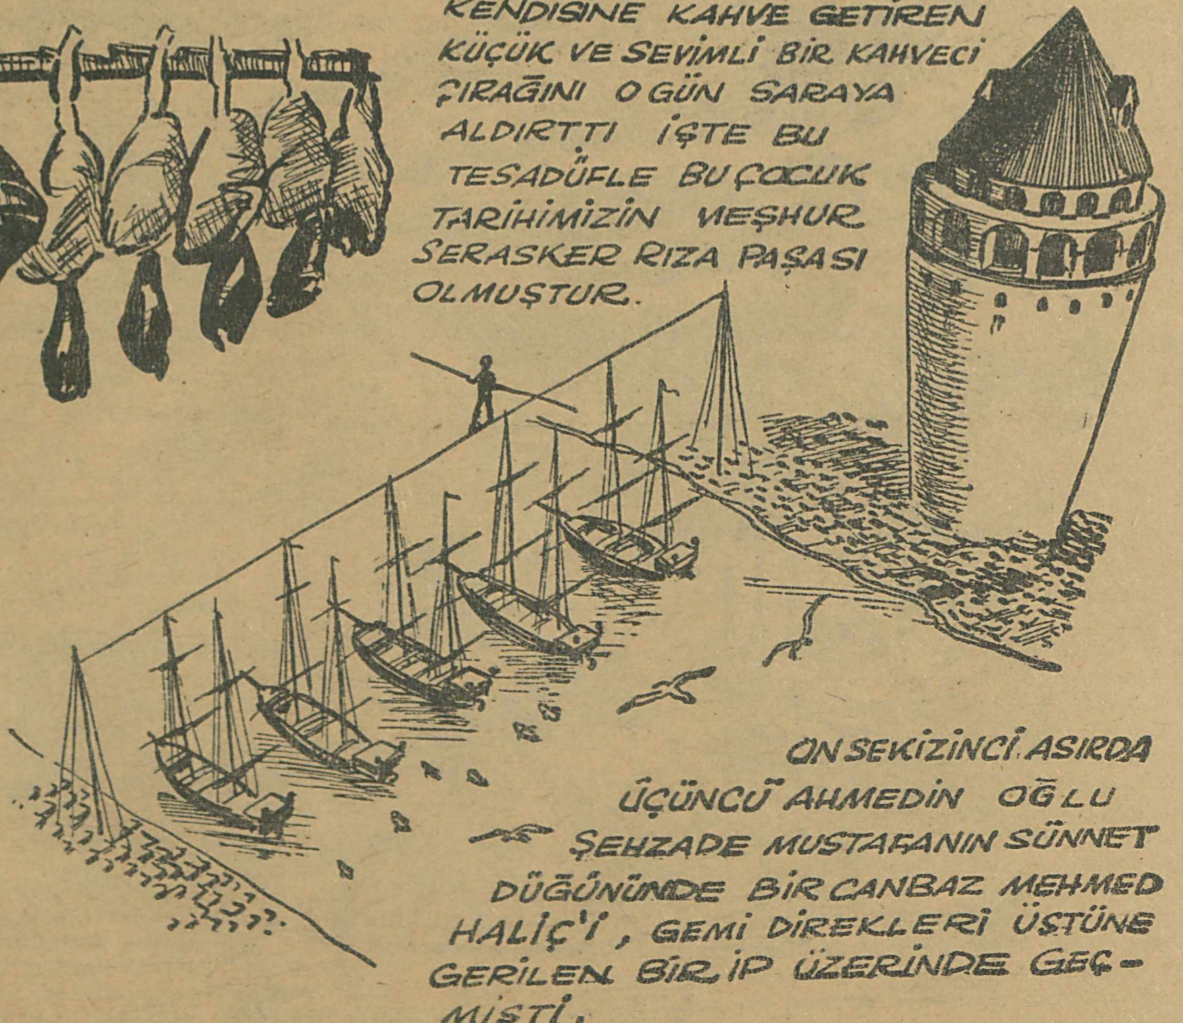 KENDİSİNE KAHVE GETİREN
KÜÇÜK VE SEVİMLİ BİR KAHVECİ
ÇIRAĞINI O GÜN SARAYA
ALDIRTTI İŞTE BU
TESADÜFLE BU ÇOCUK
TARİHİMİZİN MEŞHUR
SERASKER RIZA PAŞASI
OLMUŞTUR.
ONSEKİZİNCİ ASIRDA
ÜÇÜNCÜ AHMEDİN OĞLU
ŞEHZADE MUSTAFANIN SÜNNET
DÜĞÜNÜNDE BİR CANBAZ MEHMED
HALİÇ'İ, GEMİ DİREKLERİ ÜSTÜNE
GERİLEN BİR İP ÜZERİNDE GEÇ-
MİŞTİ.